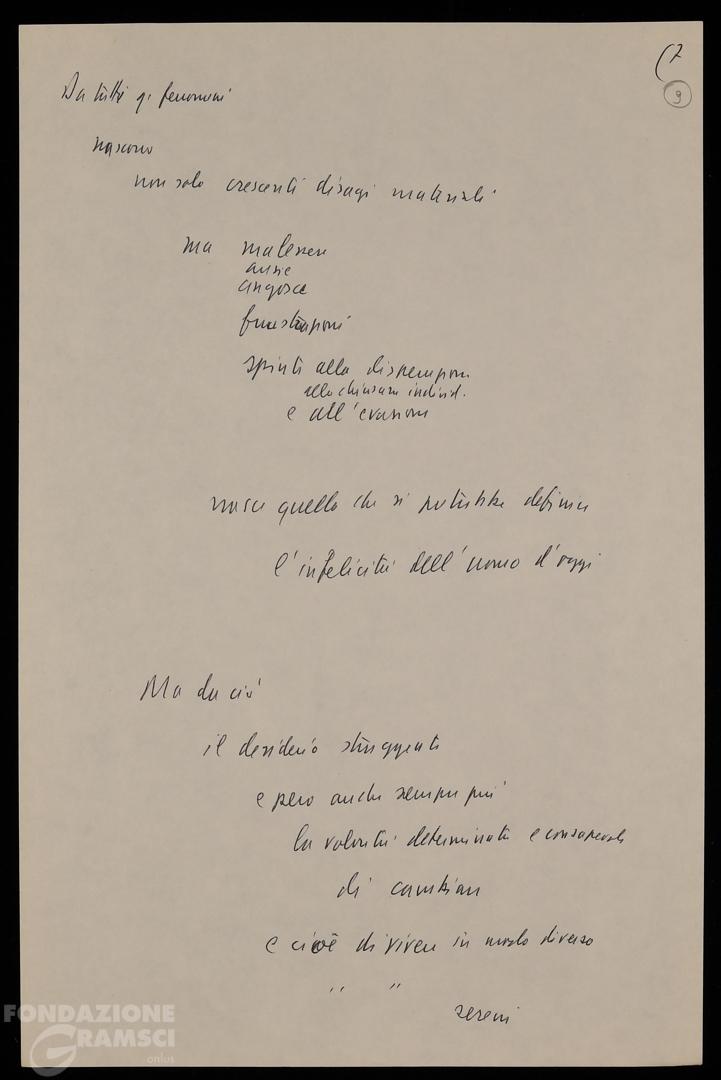 (7
9
Da tutti q. fenomeni
nascono
non solo crescenti disagi materiali
ma malessere
ansie
angosce
frustrazioni
spinte alla disperazione
alla chiusura individ.
e all'evasione
nasce quella che si potrebbe definire
l'infelicità dell'uomo d'oggi
Ma da ciò
il desiderio struggente
e però anche sempre più
la volontà determinata e consapevole
di cambiare
e cioè di vivere in modo diverso
" "
sereni
FONDAZIONE
GRAMSCI
onlus